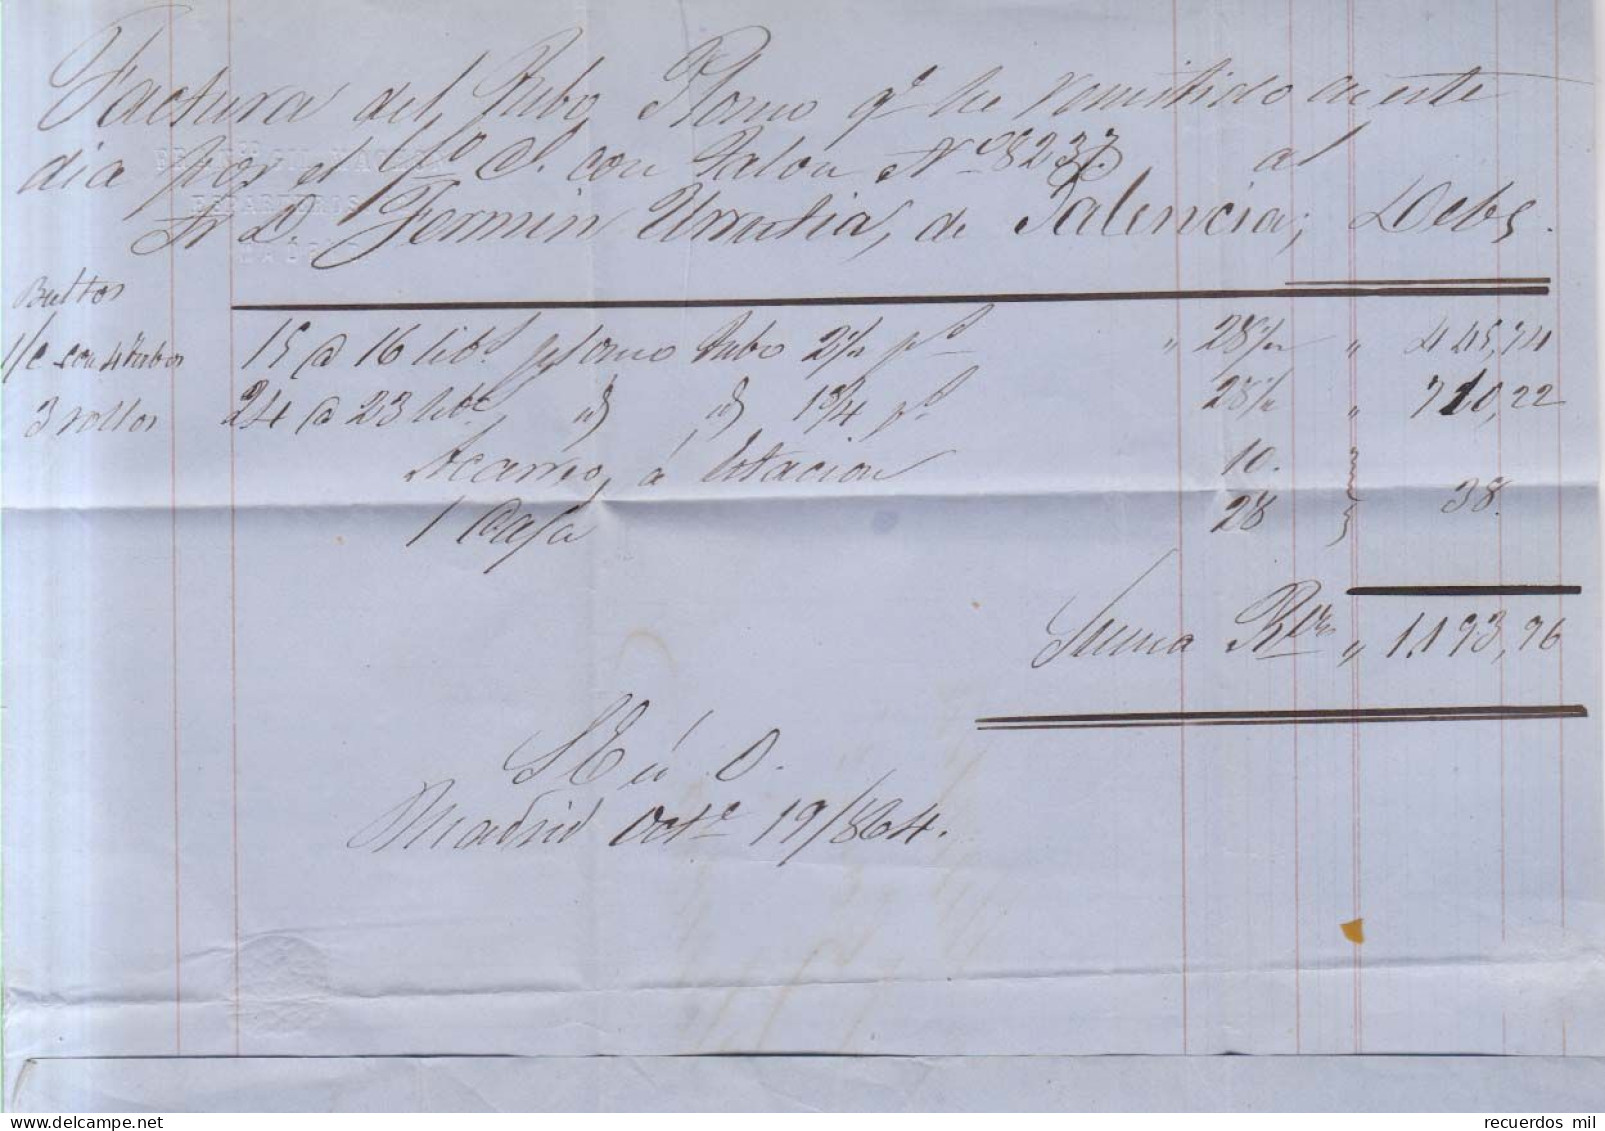 Factura del Tubo Plomo qe he remitido en este
dia por el Cº. con Talon Nº 8237. al
Sr D. Fermin Urrutia, de Palencia; Debe.
Bultos
1/c con 4 tubos 15 @ 16 libs. plomo tubo 2½ pds " 28½ " 445,74
3 rollos 24 @ 23 libs. id id 1¾ pds 28½ " 710,22
Acarreo, á Estacion 10.
1 Caja 28 38.
Suma Rvn " 1.193,96
S E ú O.
Madrid Octe 19/864.
recuerdos mil